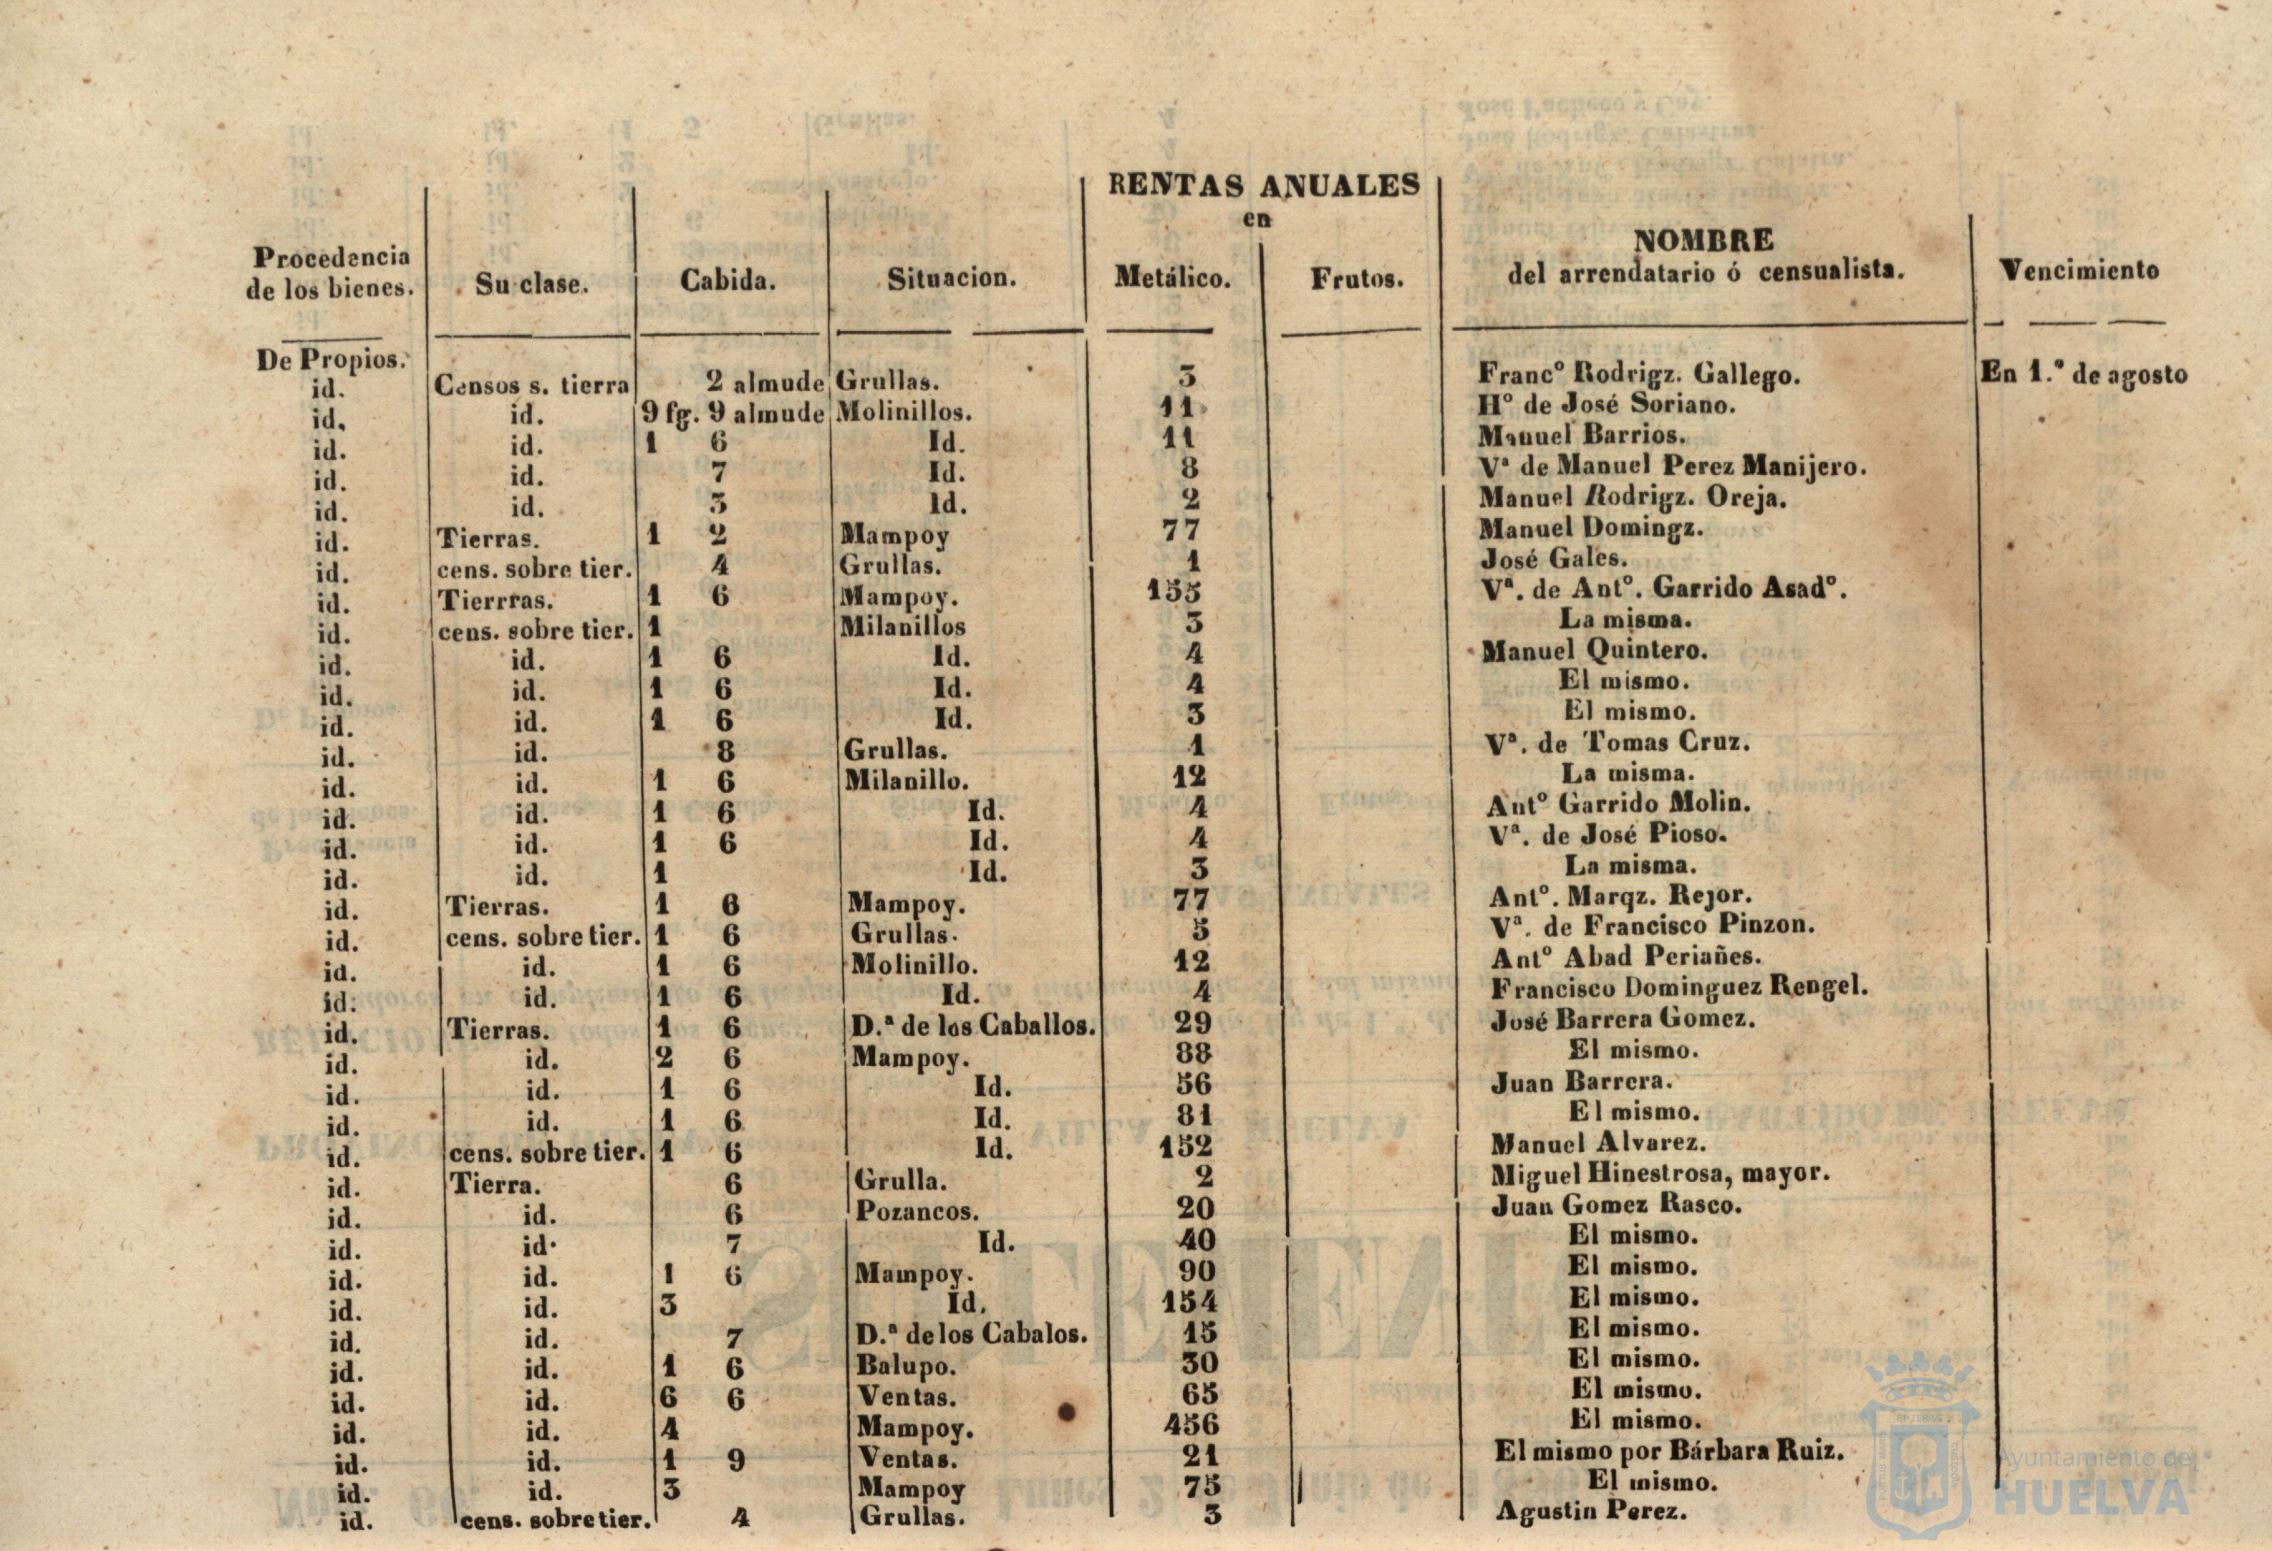 RENTAS ANUALES
en
Procedencia
de los bienes.
Su clase.
Cabida.
Situacion.
Metálico.
Frutos.
NOMBRE
del arrendatario ó censualista.
Vencimiento
De Propios.
id. Censos s. tierra 2 almude Grullas. 3 Franc° Rodrigz. Gallego. En 1.° de agosto
id. id. 9 fg. 9 almude Molinillos. 11 H° de José Soriano.
id. id. 1 6 Id. 11 Manuel Barrios.
id. id. 7 Id. 8 Vª de Manuel Perez Manijero.
id. id. 3 Id. 2 Manuel Rodrigz. Oreja.
id. Tierras. 1 2 Mampoy 77 Manuel Domingz.
id. cens. sobre tier. 4 Grullas. 1 José Gales.
id. Tierrras. 1 6 Mampoy. 155 Vª. de Ant°. Garrido Asad°.
id. cens. sobre tier. 1 Milanillos 3 La misma.
id. id. 1 6 Id. 4 Manuel Quintero.
id. id. 1 6 Id. 4 El mismo.
id. id. 1 6 Id. 3 El mismo.
id. id. 8 Grullas. 1 Vª. de Tomas Cruz.
id. id. 1 6 Milanillo. 12 La misma.
id. id. 1 6 Id. 4 Ant° Garrido Molin.
id. id. 1 6 Id. 4 Vª. de José Pioso.
id. id. 1 Id. 3 La misma.
id. Tierras. 1 6 Mampoy. 77 Ant°. Marqz. Rejor.
id. cens. sobre tier. 1 6 Grullas. 5 Vª. de Francisco Pinzon.
id. id. 1 6 Molinillo. 12 Ant° Abad Periañes.
id. id. 1 6 Id. 4 Francisco Dominguez Rengel.
id. Tierras. 1 6 D.ª de los Caballos. 29 José Barrera Gomez.
id. id. 2 6 Mampoy. 88 El mismo.
id. id. 1 6 Id. 56 Juan Barrera.
id. id. 1 6 Id. 81 El mismo.
id. cens. sobre tier. 1 6 Id. 152 Manuel Alvarez.
id. Tierra. 6 Grulla. 2 Miguel Hinestrosa, mayor.
id. id. 6 Pozancos. 20 Juan Gomez Rasco.
id. id. 7 Id. 40 El mismo.
id. id. 1 6 Mampoy. 90 El mismo.
id. id. 3 Id. 154 El mismo.
id. id. 7 D.ª de los Cabalos. 15 El mismo.
id. id. 1 6 Balupo. 30 El mismo.
id. id. 6 6 Ventas. 65 El mismo.
id. id. 4 Mampoy. 456 El mismo.
id. id. 1 9 Ventas. 21 El mismo por Bárbara Ruiz.
id. id. 3 Mampoy 75 El mismo.
id. cens. sobre tier. 4 Grullas. 3 Agustin Perez.
Ayuntamiento de
HUELVA